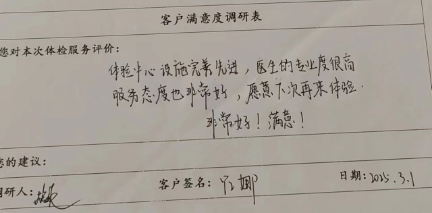 客户满意度调研表
您对本次体检服务评价：
体验中心设施完善先进，医生的专业度很高
服务态度也非常好，愿意下次再来体验.
非常好！满意！
您的建议：
调研人： 客户签名： 日期：2025.3.1